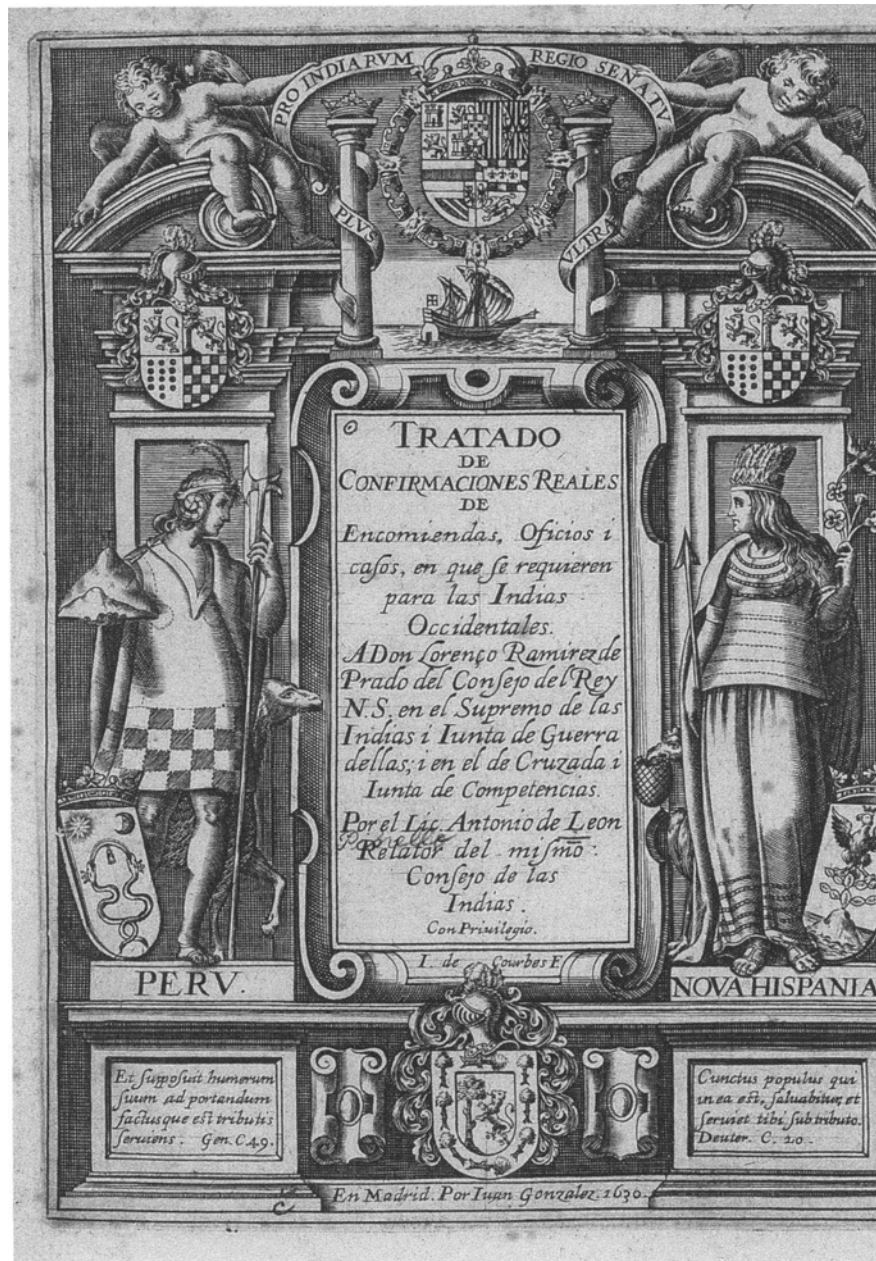 PRO INDIARVM REGIO SENATV.
PLVS
VLTRA
TRATADO
DE
CONFIRMACIONES REALES
DE
Encomiendas, Oficios i
casos, en que se requieren
para las Indias
Occidentales.
A Don Lorenço Ramirez de
Prado del Consejo del Rey
N.S. en el Supremo de las
Indias i Iunta de Guerra
dellas; i en el de Cruzada i
Iunta de Competencias.
Por el Lic. Antonio de Leon
Relator del mismo
Consejo de las
Indias.
Con Priuilegio.
I. de Courbes F.
PERV.
NOVA HISPANIA
Et supposuit humerum
suum ad portandum
factusque est tributis
seruiens. Gen. C. 49.
Cunctus populus qui
in ea est, saluabitur, et
seruiet tibi sub tributo.
Deuter. C. 20.
En Madrid. Por Iuan Gonzalez. 1630.